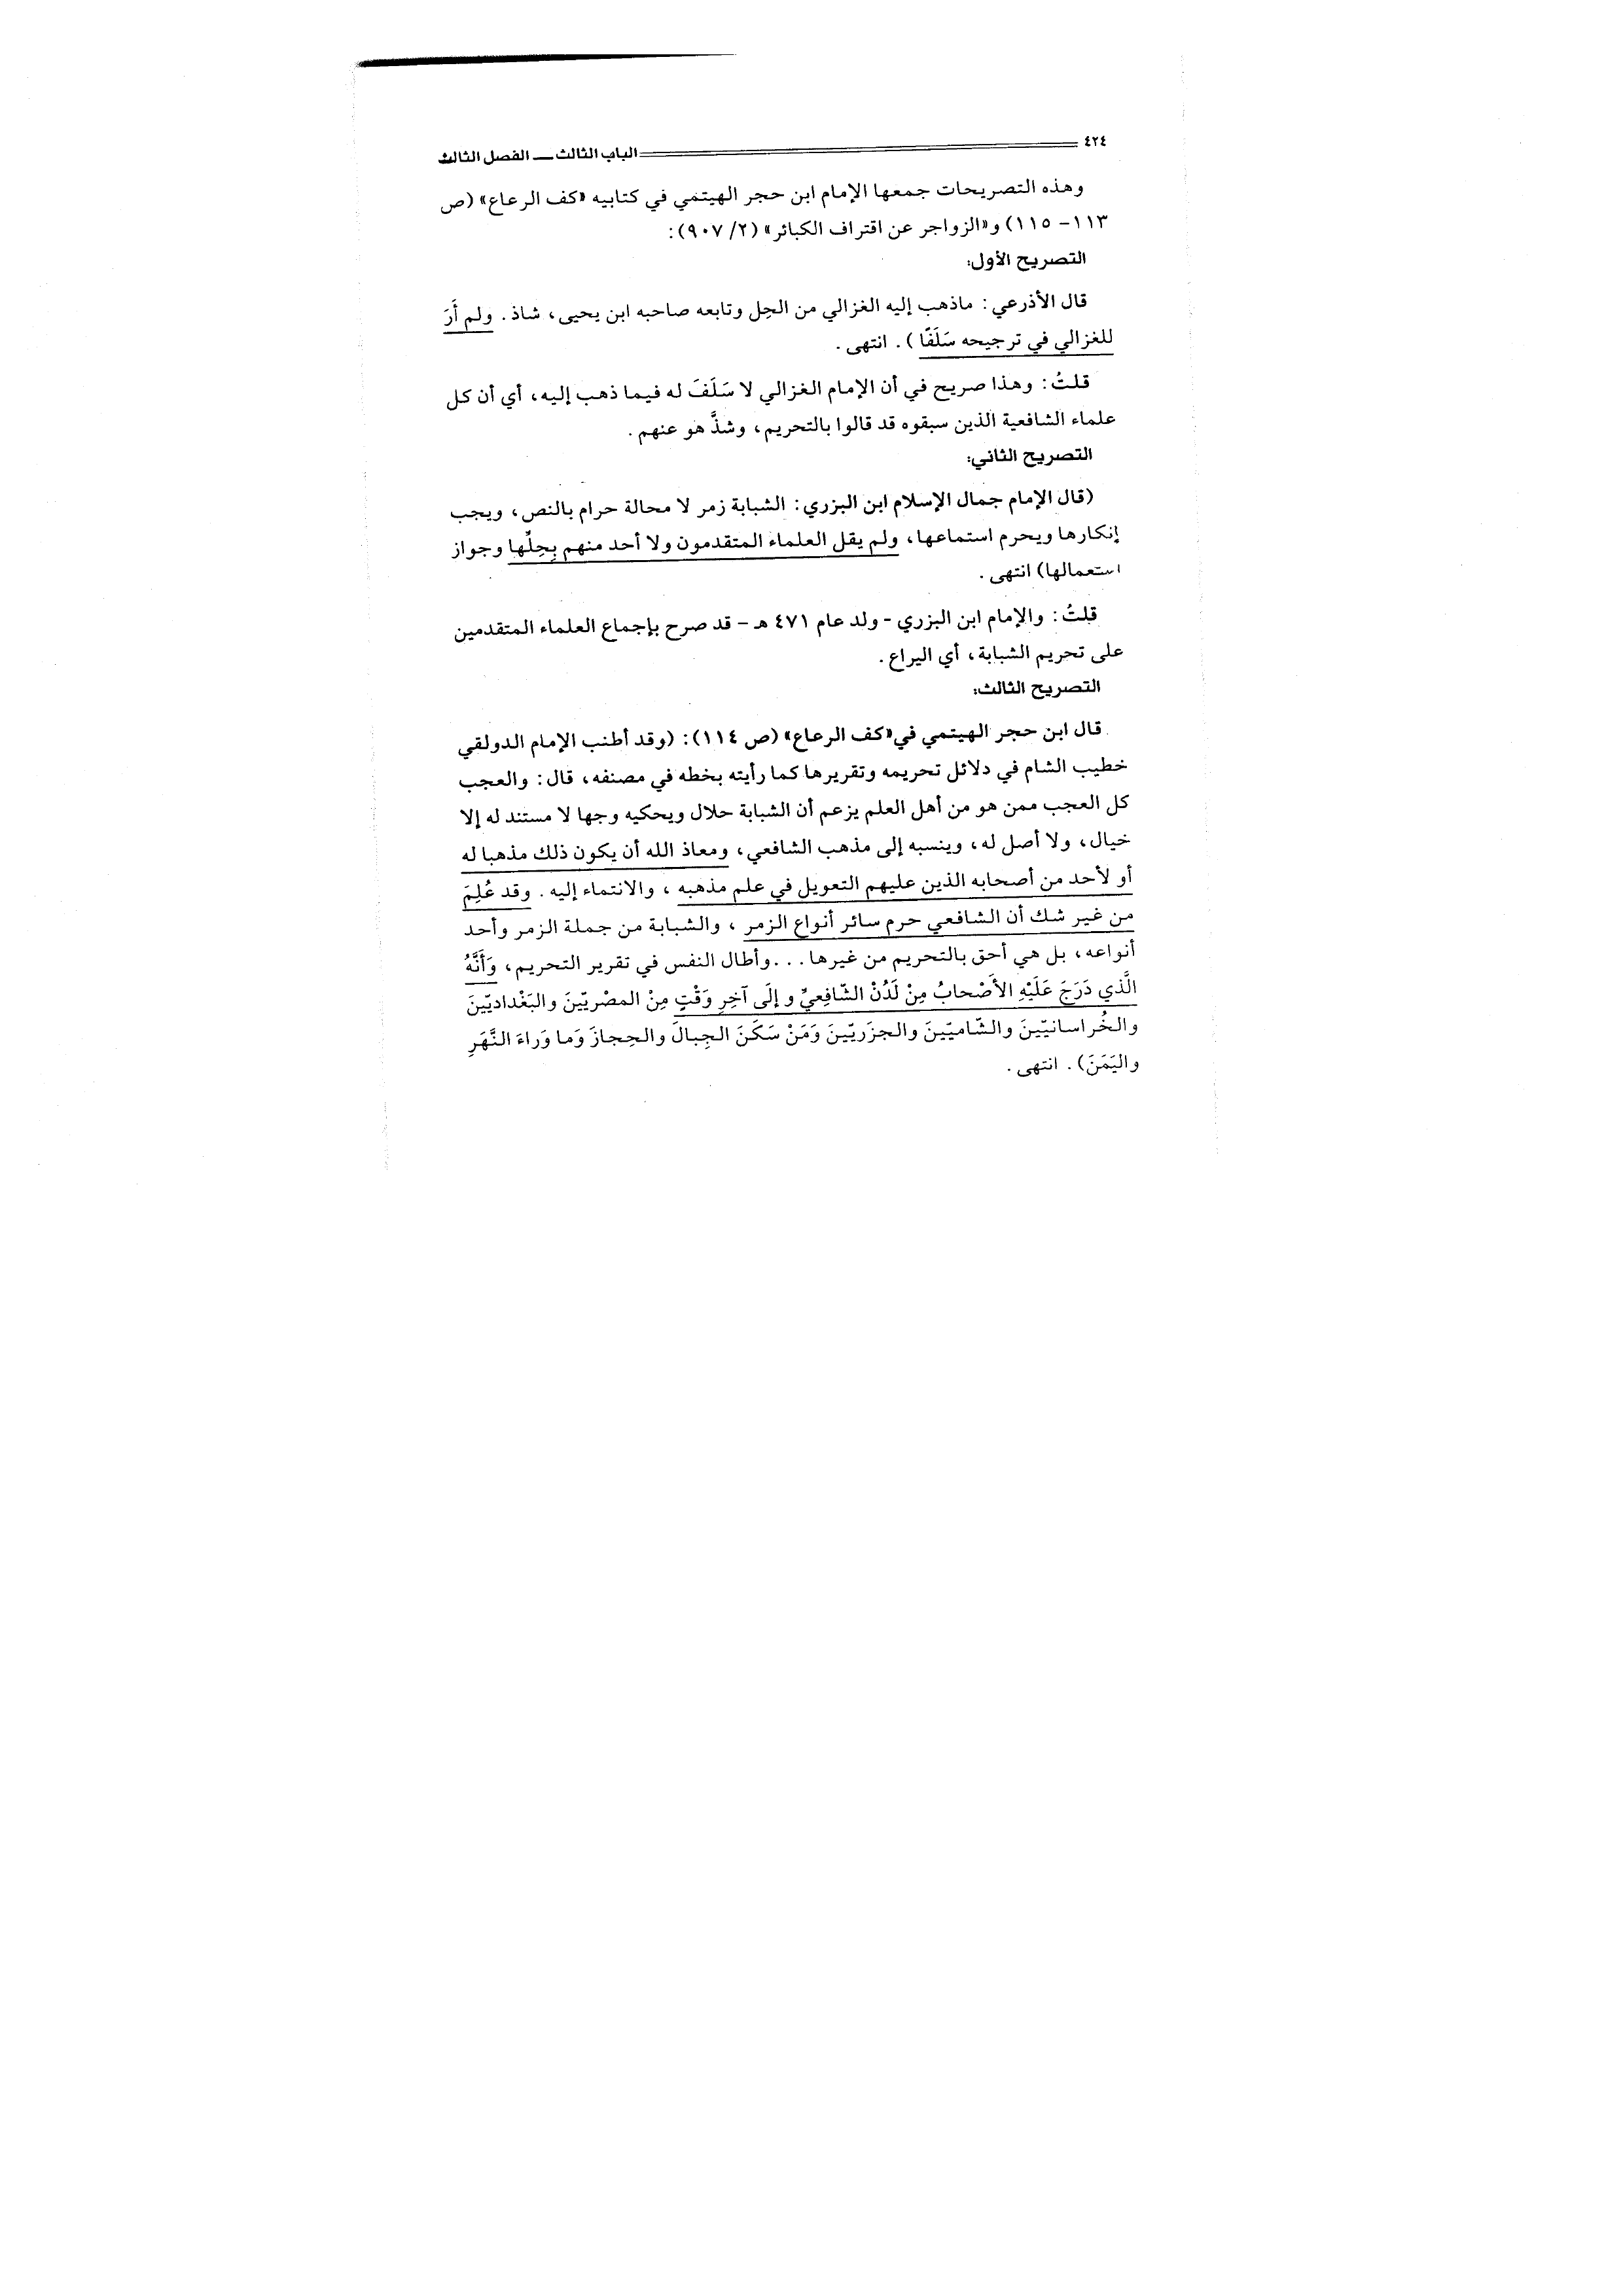 ٤٢٤ الباب الثالث ـــ الفصل الثالث
وهذه التصريحات جمعها الإمام ابن حجر الهيتمي في كتابيه «كف الرعاع» (ص
١١٣- ١١٥) و«الزواجر عن اقتراف الكبائر» (٢/ ٩٠٧):
التصريح الأول:
قال الأذرعي: ماذهب إليه الغزالي من الحِل وتابعه صاحبه ابن يحيى، شاذ. ولم أَرَ
للغزالي في ترجيحه سَلَفًا). انتهى.
قلتُ: وهذا صريح في أن الإمام الغزالي لا سَلَفَ له فيما ذهب إليه، أي أن كل
علماء الشافعية الذين سبقوه قد قالوا بالتحريم، وشذَّ هو عنهم.
التصريح الثاني:
(قال الإمام جمال الإسلام ابن البزري: الشبابة زمر لا محالة حرام بالنص، ويجب
إنكارها ويحرم استماعها، ولم يقل العلماء المتقدمون ولا أحد منهم بِحِلِّها وجواز
استعمالها) انتهى.
قلتُ: والإمام ابن البزري - ولد عام ٤٧١ هـ - قد صرح بإجماع العلماء المتقدمين
على تحريم الشبابة، أي اليراع.
التصريح الثالث:
قال ابن حجر الهيتمي في«كف الرعاع» (ص ١١٤): (وقد أطنب الإمام الدولقي
خطيب الشام في دلائل تحريمه وتقريرها كما رأيته بخطه في مصنفه، قال: والعجب
كل العجب ممن هو من أهل العلم يزعم أن الشبابة حلال ويحكيه وجها لا مستند له إلا
خيال، ولا أصل له، وينسبه إلى مذهب الشافعي، ومعاذ الله أن يكون ذلك مذهبا له
أو لأحد من أصحابه الذين عليهم التعويل في علم مذهبه، والانتماء إليه. وقد عُلِمَ
من غير شك أن الشافعي حرم سائر أنواع الزمر، والشبابة من جملة الزمر وأحد
أنواعه، بل هي أحق بالتحريم من غيرها...وأطال النفس في تقرير التحريم، وَأَنَّهُ
الَّذي دَرَجَ عَلَيْهِ الأَصْحابُ مِنْ لَدُنْ الشّافِعيِّ وإلَى آخِرِ وَقْتٍ مِنْ المصْريّينَ والبَغْداديّينَ
والخُراسانيّينَ والشّاميّينَ والجزَريّينَ وَمَنْ سَكَنَ الجِبالَ والحِجازَ وَما وَراءَ النَّهَرِ
واليَمَنَ). انتهى.